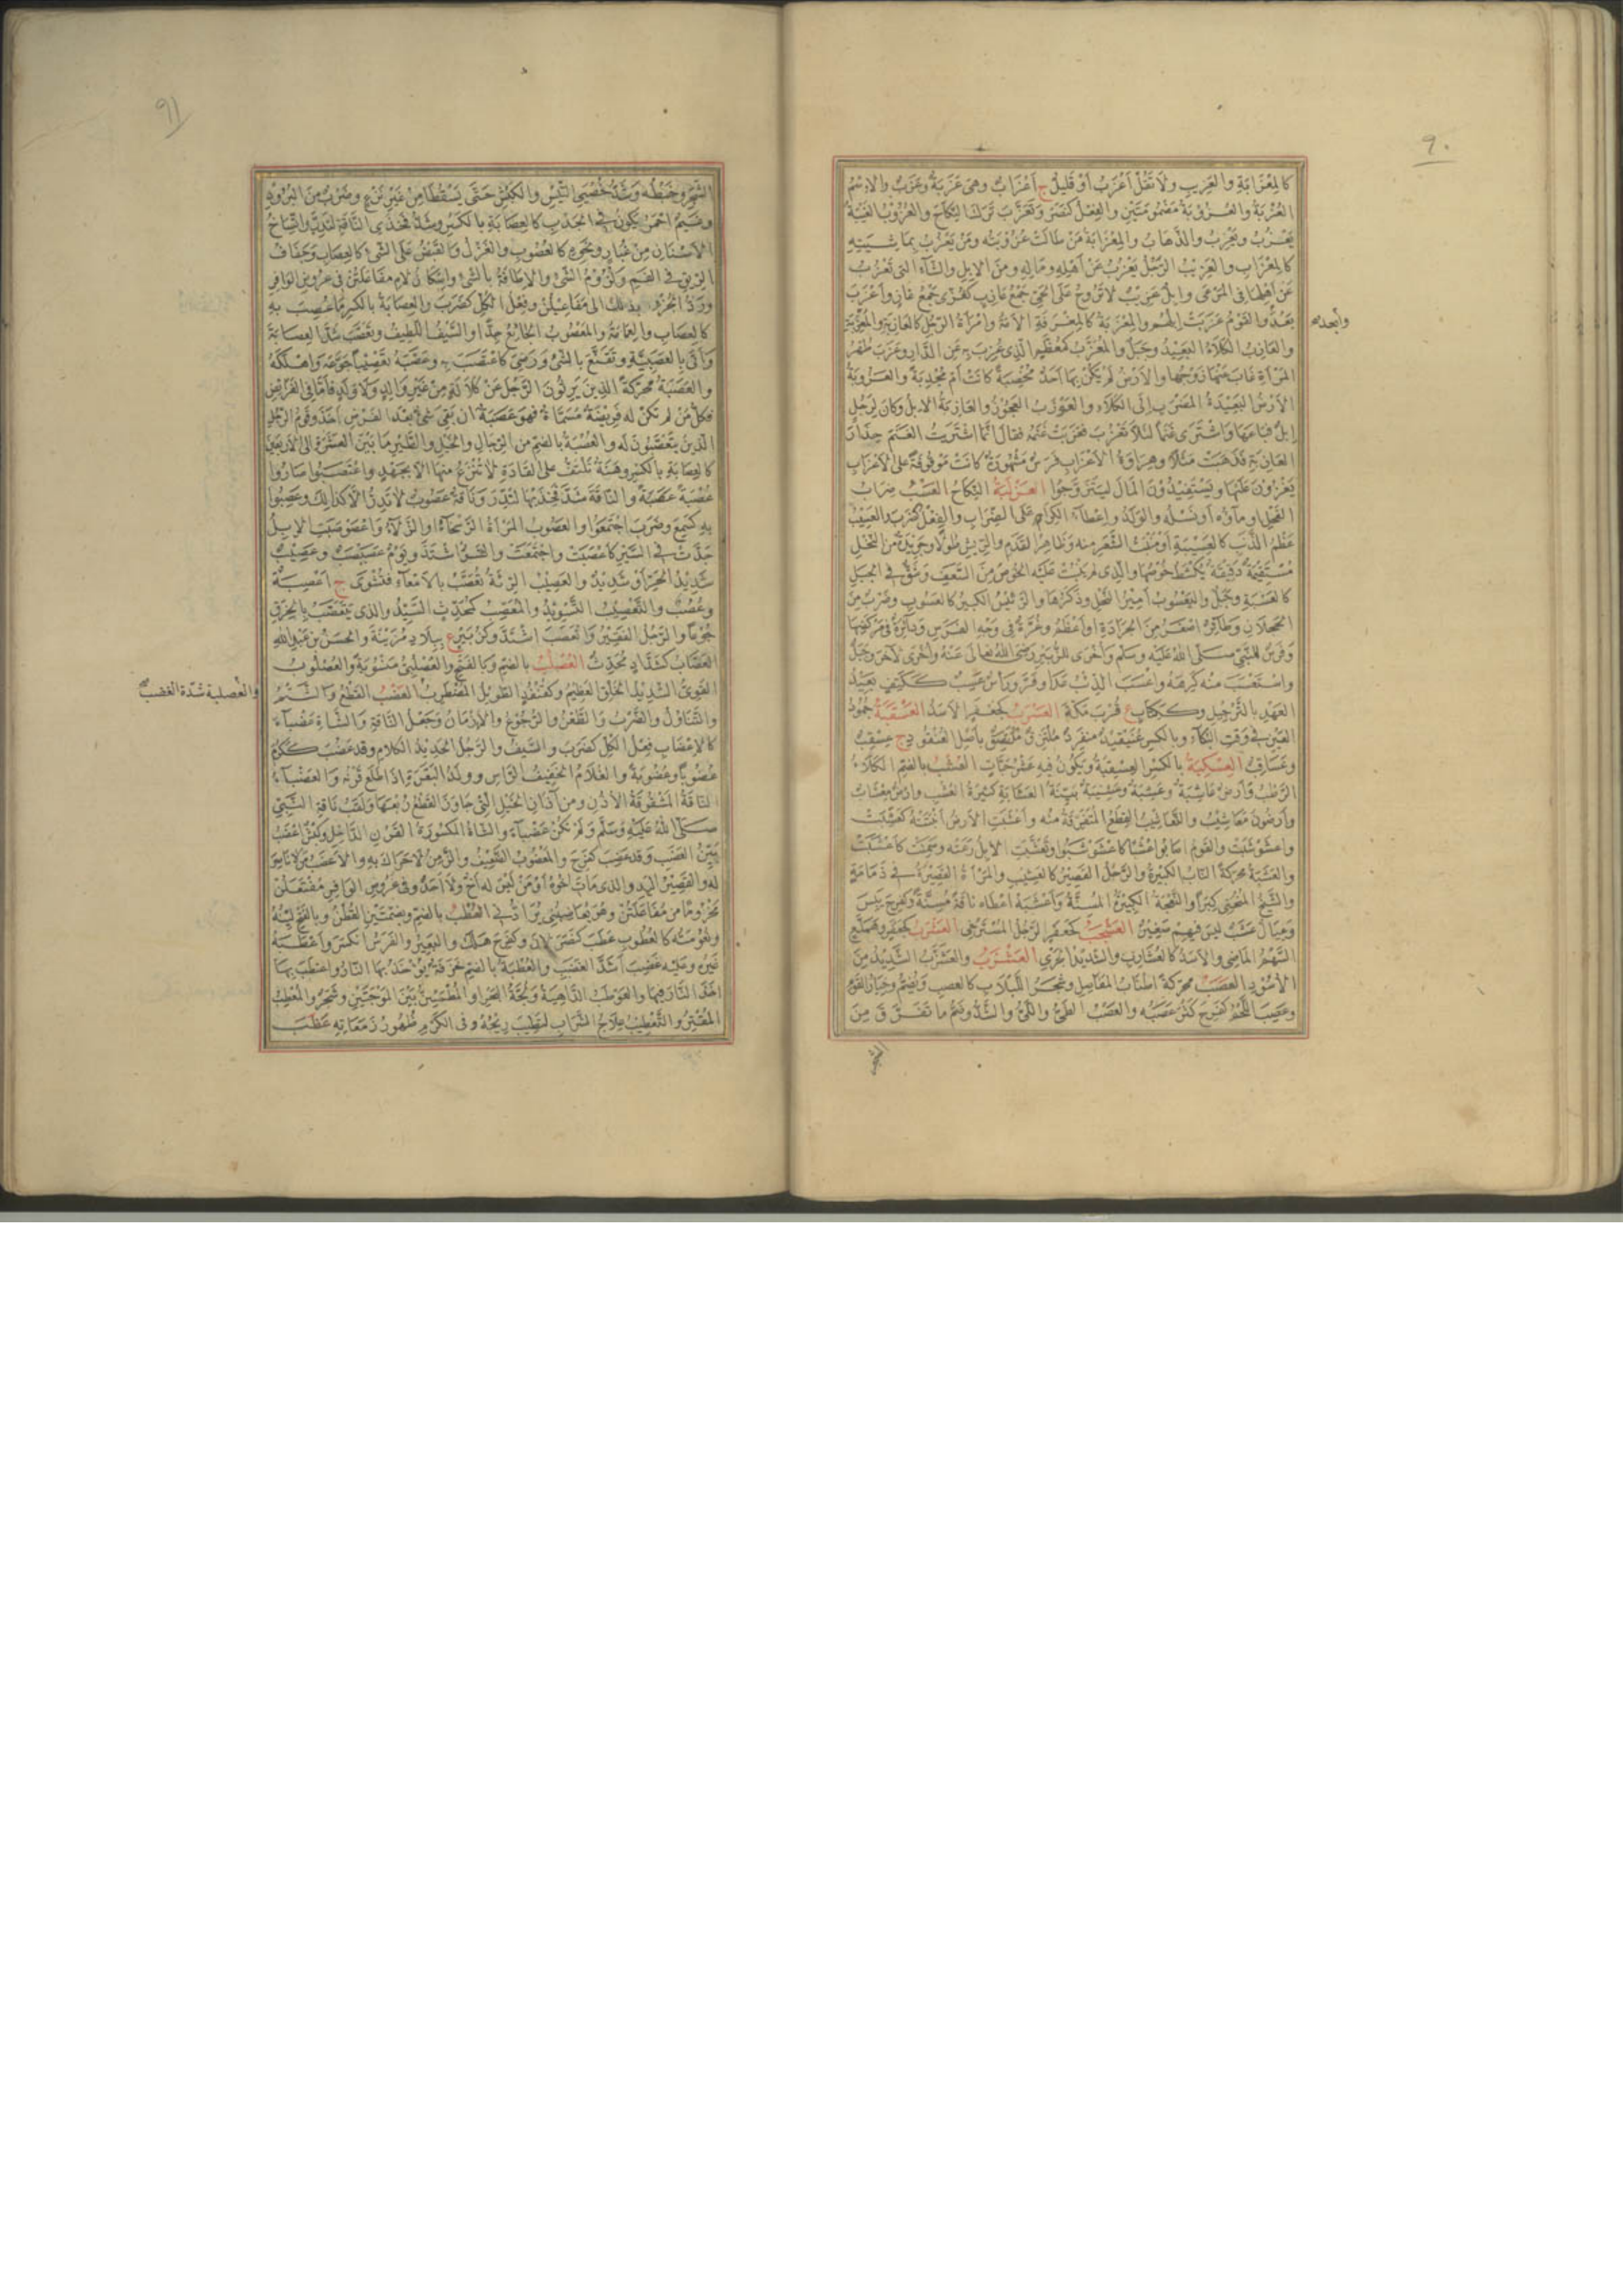 ٩٠
كالمعزابة والعزيب ولا تقل أعزب أو قليل ج أعزاب وهي عزبة وعزب والاسم
العزبة والعزوبة مضمومتين والفعل كنصر وتعزب ترك النكاح والعزوب الغيبة
يعزب ويعزب والذهاب والمعزابة من طالت عزوبته ومن يعزب بماشيته
كالمعزاب والعزيب الرجل يعزب عن أهله وماله ومن الابل والشاء التي تعزب
عن أهلها في المرعى وابل عزيب لا تروح على الحي جمع عازب كغزي جمع غاز وأعزب
بعد والقوم عزبت ابلهم والمعزبة كالمغرفة الامة وامرأة الرجل كالعازبة والمعزبة
وأبعد صح
والعازب الكلأ البعيد وجبل والمعزب كمعظم الذي عزب به عن الدار وعزب طهر
المرأة غاب عنها زوجها والارض لم يكن بها أحد مخصبة كانت أم مجدبة والعزوبة
الارض البعيدة المضرب الى الكلاء والعوزب العجوز والعازبة الابل وكان لرجل
ابل فباعها واشترى غنما لئلا تعزب فعزبت غنمه فقال انما اشتريت الغنم حذار
العازبة فذهبت مثلا وهراوة الاعزاب فرس مشهورة كانت موقوفة على الاعزاب
يغزون عليها ويستفيدون المال ليتزوجوا العزلبة النكاح العسب ضراب
الفحل او ماؤه أو نسله والولد واعطاء الكراء على الضراب والفعل كضرب والعسيب
عظم الذنب كالعسيبة أو منبت الشعر منه وظاهر القدم والريش طولا وجريدة من النخل
مستقيمة دقيقة يكشط خوصها والذي لم ينبت عليه الخوص من السعف وشق في الجبل
كالعسبة وجبل واليعسوب أمير النحل وذكرها والرئيس الكبير كالعسوب وضرب من
الحجلان وطائر أصغر من الجرادة او أعظم وغرة في وجه الفرس ودائرة في مركضها
وفرس للنبي صلى الله عليه وسلم وأخرى للزبير رضي الله تعالى عنه وأخرى لآخر وجبل
واستعسب منه كرهه وأعسب الذئب عدا وفر ورأس عسب ككتف بعيد
العهد بالترجيل وككتاب ع قرب مكة العسرب كجعفر الاسد العسقبة جمود
العين في وقت البكاء وبالكسر عنيقيد منفرد ملتزق بأصل العنقود ج عسقب
وعساقب العسكبة بالكسر العسقبة ويكون فيه عشر حبات العشب بالضم الكلاء
الرطب وأرض عاشبة وعشبة وعشيبة بينة العشابة كثيرة العشب وأرض معشاب
وأرضون معاشيب والتعاشيب القطع المتفرقة منه وأعشبت الارض أنبتته كعشبت
واعشوشبت والقوم أصابوا عشبا كاعشوشبوا وتعشبت الابل رعته وسمنت كأعشبت
والعشبة محركة الناب الكبيرة والرجل القصير كالعشيب والمرأة القصيرة في دمامة
والشيخ المنحني كبرا والنعجة الكبيرة المسنة وأعشبه أعطاه ناقة مسنة وكفرح يبس
وعيال عشب ليس فيهم صغير العشجب كجعفر الرجل المسترخي العشرب كجعفر وعملس
السهم الماضي والاسد كالعشارب والشديد الجري العشزب والعشزب الشديد من
الاسود العصب محركة أطناب المفاصل وشجر اللبلاب كالعصب ويضم وخيار القوم
وعصب اللحم كفرح كثر عصبه والعصب الطي واللي والشد وضم ما تفرق من
الشجر
٩١
الشجر وخبطه وشد خصيي التيس والكبش حتى يسقطا من غير نزع وضرب من البرود
وغيم أحمر يكون في الجدب كالعصابة بالكسر وشد فخذي الناقة لتدر واتساخ
الاسنان من غبار ونحوه كالعصوب والغزل والقبض على الشئ كالعصاب وجفاف
الريق في الفم ولزوم الشئ والاطافة بالشئ واسكان لام مفاعلتن في عروض الوافر
ورد الجزء بذلك الى مفاعيلن وفعل الكل كضرب والعصابة بالكسر ما عصب به
كالعصاب والعمامة والمعصوب الجائع جدا والسيف اللطيف وتعصب شد العصابة
وأتى بالعصبية وتقنع بالشئ ورضي كاعتصب به وعصبه تعصيبا جوعه وأهلكه
والعصبة محركة الذين يرثون الرجل عن كلالة من غير والد ولا ولد فأما في الفرائض
فكل من لم تكن له فريضة مسماة فهو عصبة ان بقي شئ بعد الفرض أخذ وقوم الرجل
الذين يتعصبون له والعصبة بالضم من الرجال والخيل والطير ما بين العشرة الى الاربعين
كالعصابة بالكسر وهنة تلتف على القتادة لا تنزع منها الا بجهد واعتصبوا صاروا
عصبة عصبة والناقة شد فخذيها لتدر وناقة عصوب لا تدر الا كذلك وعصبوا
به كسمع وضرب اجتمعوا والعصوب المرأة الرسحاء والزلاء واعصوصبت الابل
جدت في السير كأعصبت واجتمعت والشر اشتد ويوم عصبصب وعصيب
شديد الحر أو شديد والعصيب الرئة تعصب بالامعاء فتشوى ج أعصبة
وعصب والتعصيب التسويد والمعصب كمحدث السيد والذي يتعصب بالخرق
جوعا والرجل الفقير وانعصب اشتد وكزبير ع ببلاد مزينة والحسن بن عبدالله
العصاب كشداد محدث العصلب بالضم وبالفتح والعصلبي منسوبة والعصلوب
القوي الشديد الخلق العظيم وكقنفذ الطويل المضطرب العضب القطع والشتم
والعصلبة شدة الغضب صح
والتناول والضرب والطعن والرجوع والازمان وجعل الناقة والشاة عضباء
كالاعضاب فعل الكل كضرب والسيف والرجل الحديد الكلام وقد عضب ككرم
عضوبا وعضوبة والغلام الخفيف الرأس وولد البقرة اذا طلع قرنه والعضباء
الناقة المشقوقة الاذن ومن آذان الخيل التي جاوز القطع ربعها ولقب ناقة النبي
صلى الله عليه وسلم ولم تكن عضباء والشاة المكسورة القرن الداخل وكبش أعضب
بين العضب وقد عضب كفرح والمعضوب الضعيف والزمن لا حراك به والاعضب من لا ناصر
له والقصير اليد والذي مات أخوه أو من ليس له أخ ولا أحد وفي عروض الوافر مفتعلن
مخروما من مفاعلتن وهو يعاضبني يرادني العطب بالضم وبضمتين القطن وبالفتح لينه
ونعومته كالعطوب عطب كنصر لان وكفرح هلك والبعير والفرس انكسر وأعطبه
غيره وعليه غضب أشد الغضب والعطبة بالضم خرقة تؤخذ بها النار واعتطب بها
أخذ النار فيها والعوطب الداهية ولجة البحر او المطمئن بين الموجتين وشجر والمعطب
المقتر والتعطيب علاج الشراب لتطيب ريحه وفي الكرم ظهور زمعاته عظب